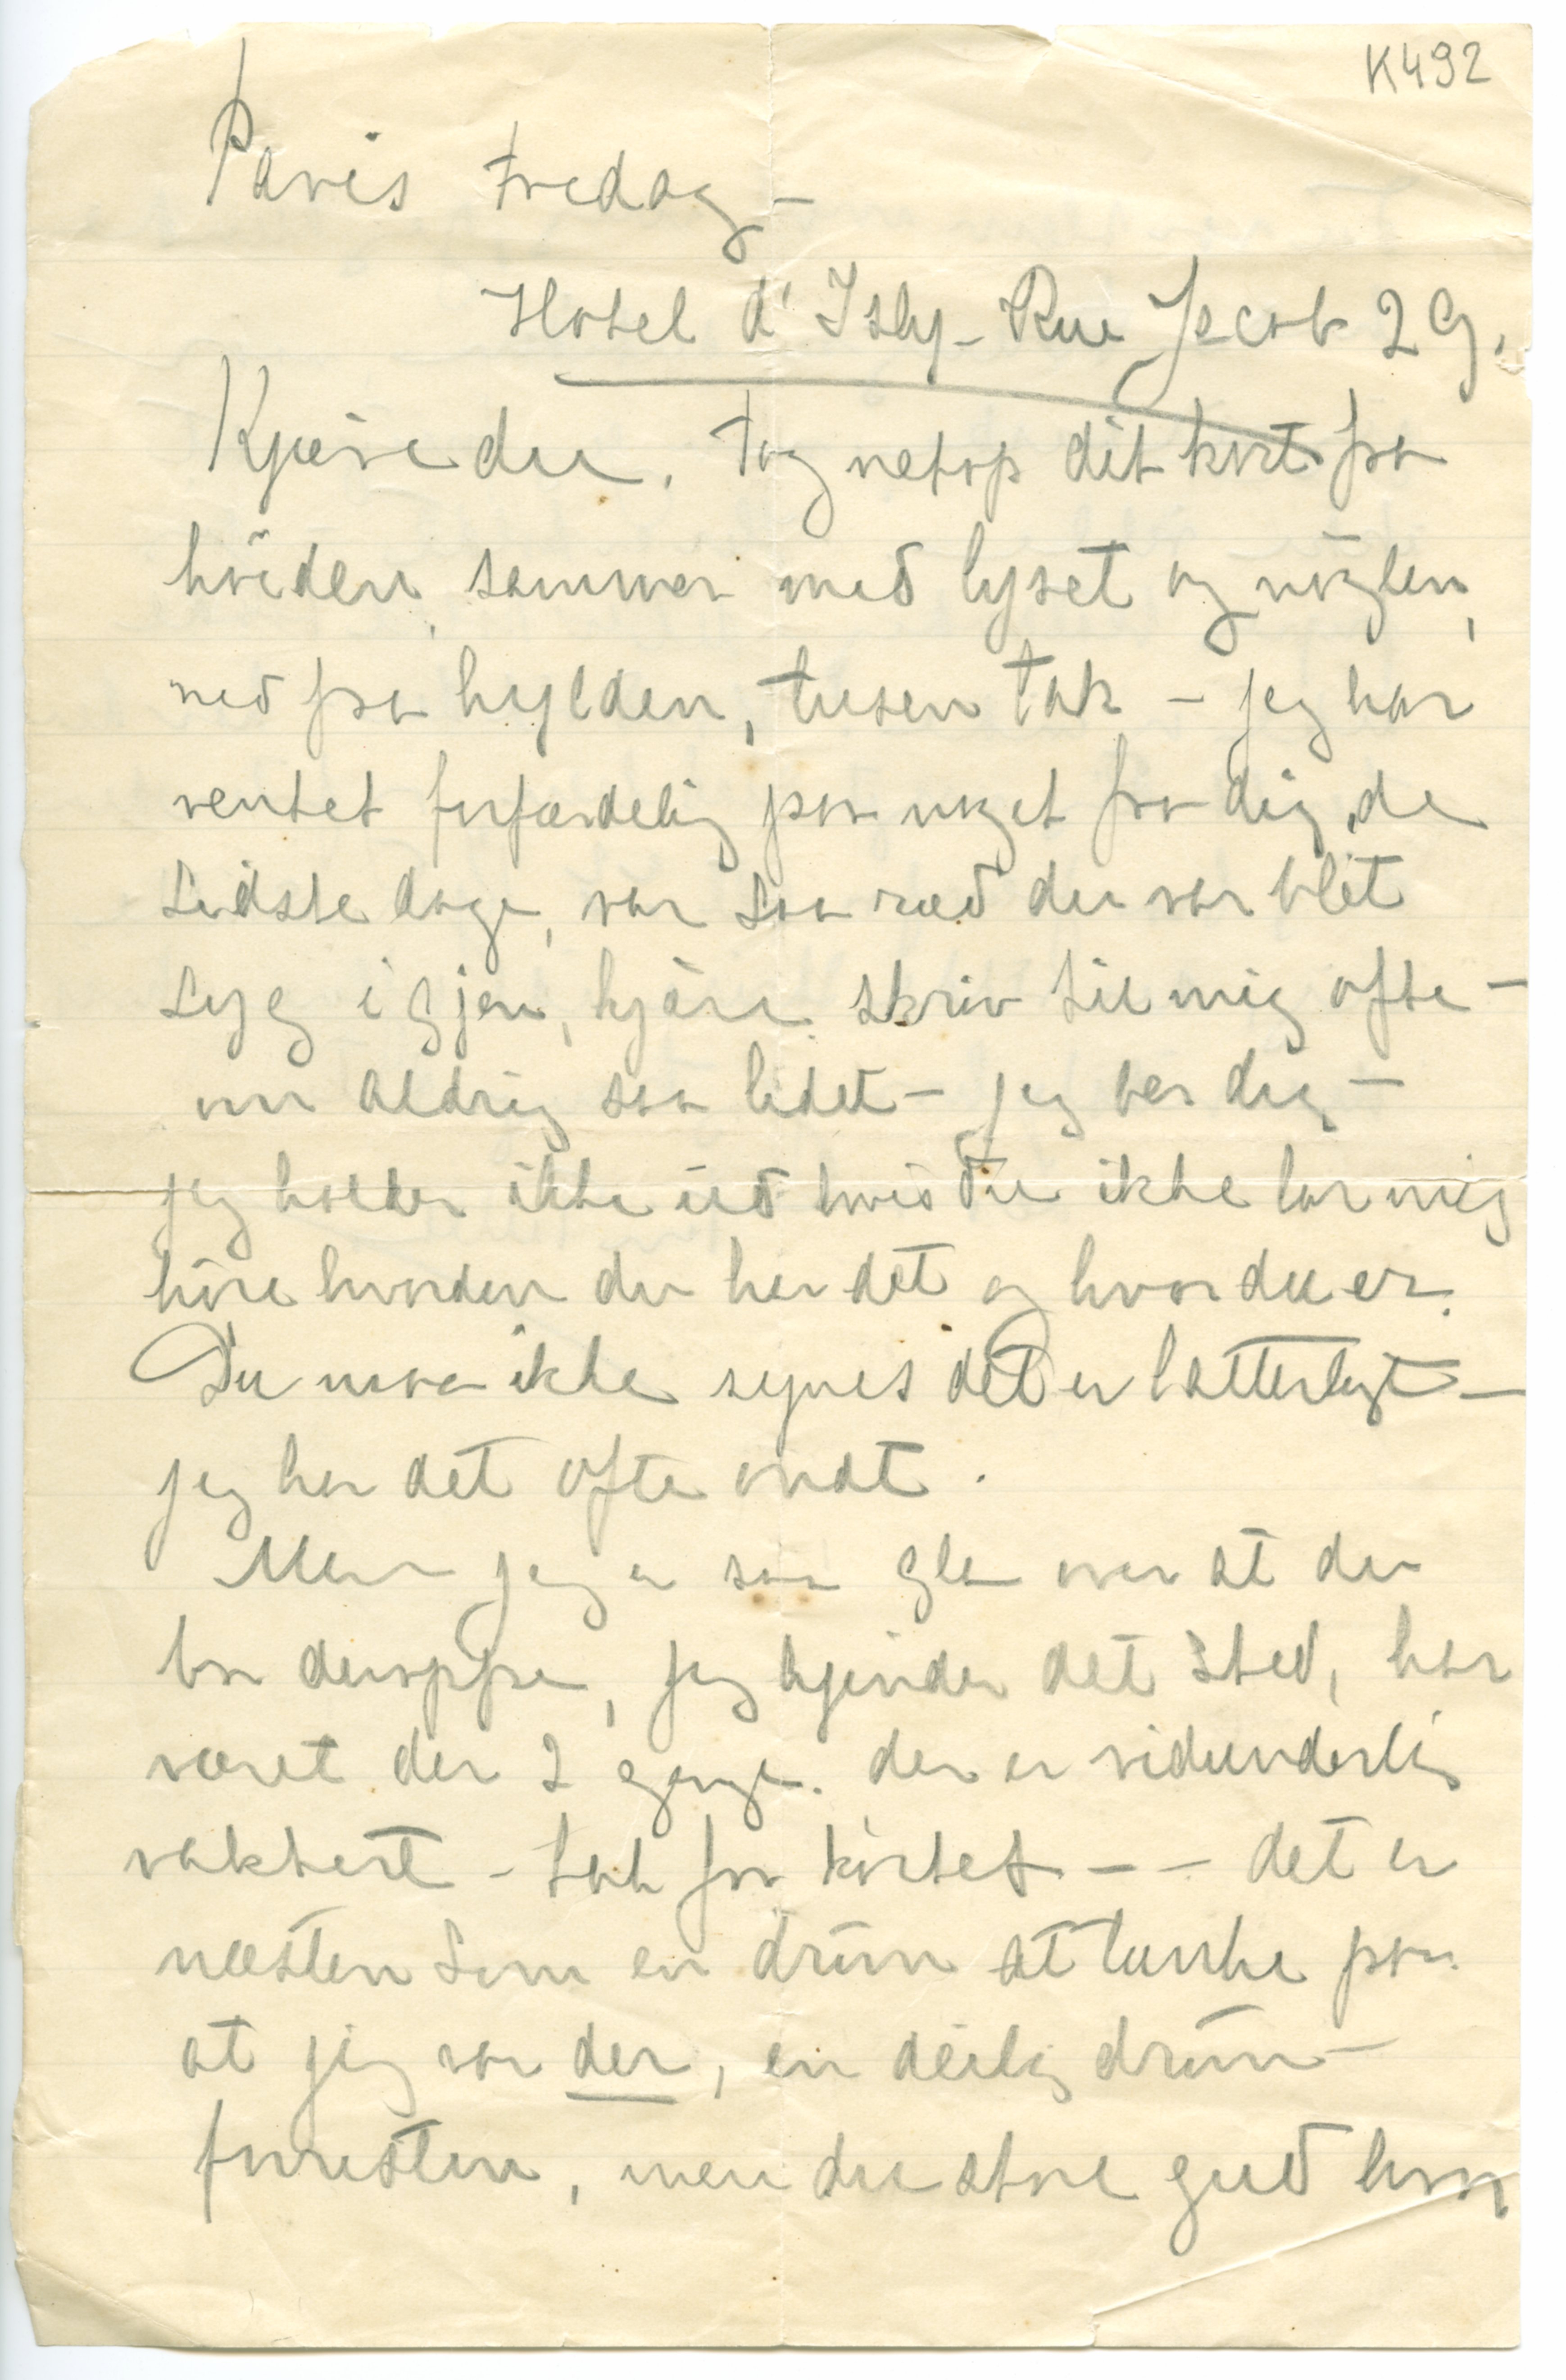 K492
Paris Fredag –
Hotel d'Isly – Rue Jacob 29.
Kjære du. Tog netop dit kort fra
höiden, sammen med lyset og nøglen,
ned fra hylden, tusen tak – jeg har
ventet forfærdelig paa noget fra dig, de
sidste dage, var saa ræd du var blit
syg igjen, kjäre skriv til mig ofte –
om aldrig saa lidet – jeg ber dig –
jeg holder ikke ud hvis du ikke lar mig
höre hvordan du har det og hvor du er.
Du maa ikke synes det er latterligt –
jeg har det ofte ondt.
Men jeg er saa gla over at du
bor deroppe, jeg kjender det sted, har
været der 2 gange. der er vidunderlig
vakkert – tak for kortet – – det er
næsten som en dröm at tænke paa
at jeg var der, en deilig dröm –
forresten, men du store gud hvor